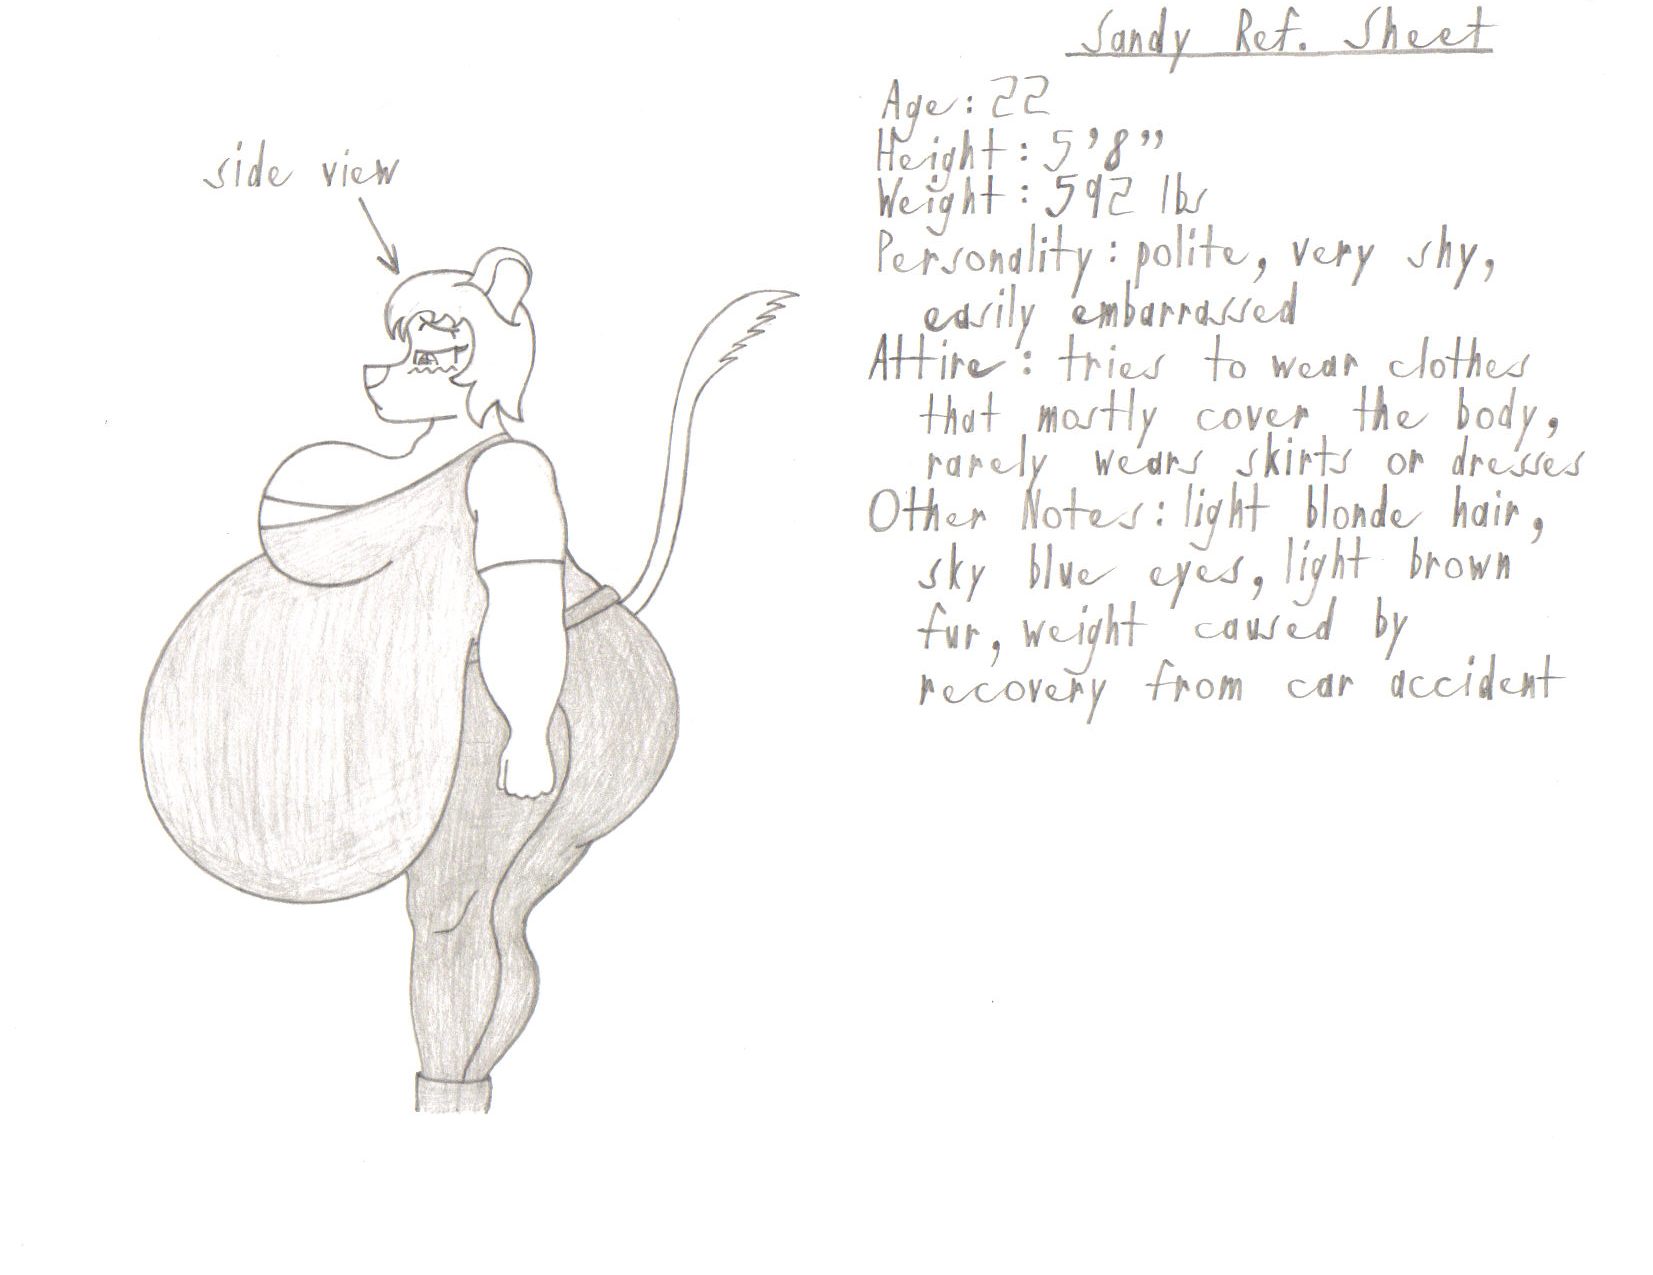 Sandy Ref. Sheet
Age: 22
Height: 5'8"
Weight: 592 lbs
Personality: polite, very shy,
easily embarrassed
Attire: tries to wear clothes
that mostly cover the body,
rarely wears skirts or dresses
Other Notes: light blonde hair,
sky blue eyes, light brown
fur, weight caused by
recovery from car accident
side view